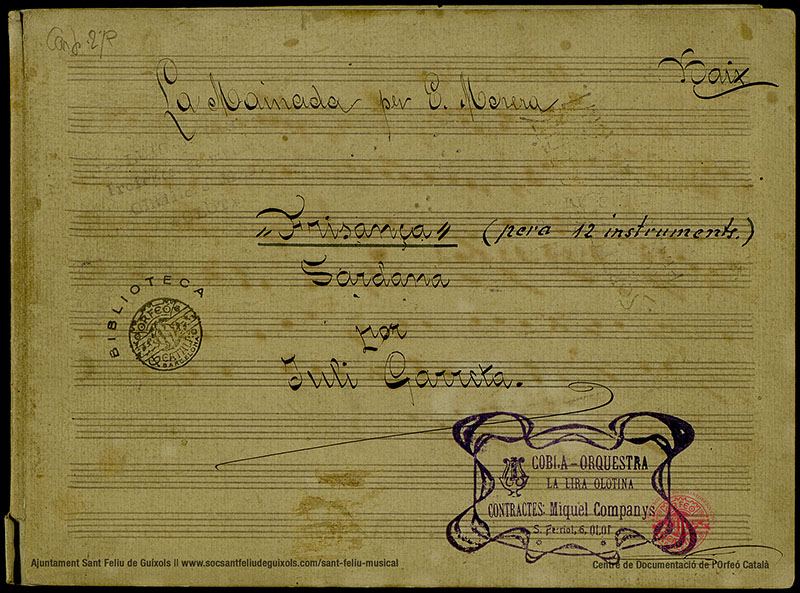 Carp. 27
Xaix
La Mainada per E. Morera
"Frisança" (pera 12 instruments.)
Sardana
per
Juli Garreta.
BIBLIOTECA
ORFEÓ CATALÀ
BARCELONA
COBLA-ORQUESTRA
LA LIRA OLOTINA
CONTRACTES: Miquel Companys
S. Ferriol, 6, OLOT
Ajuntament Sant Feliu de Guíxols II www.socsantfeliudeguixols.com/sant-feliu-musical
Centre de Documentació de l'Orfeó Català